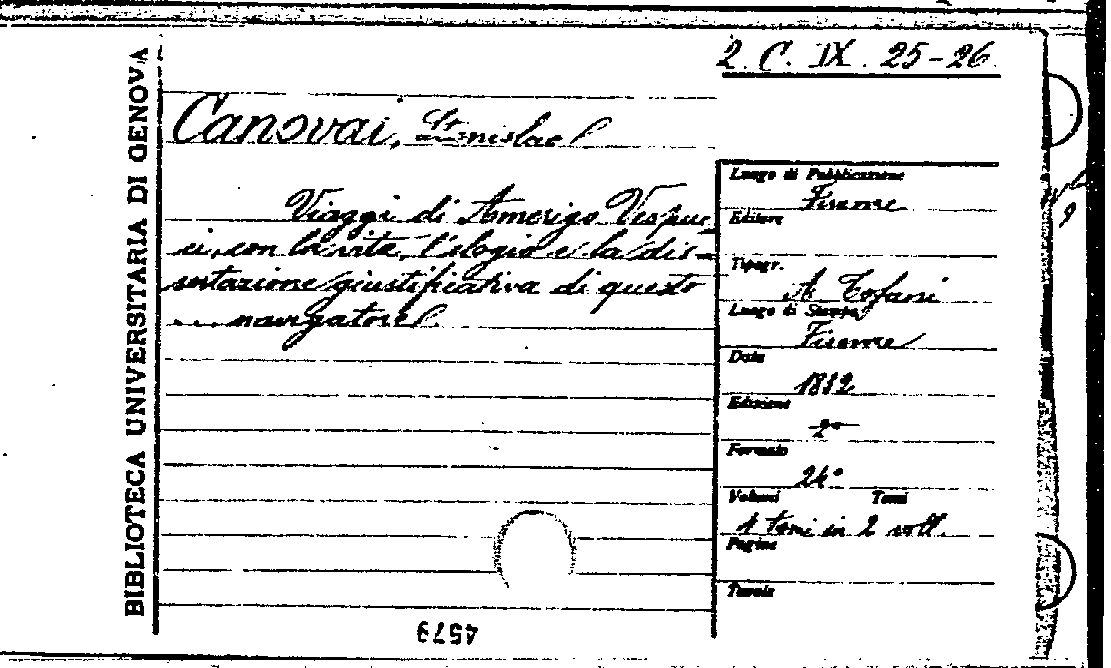 2. C. IX. 25-26
BIBLIOTECA UNIVERSITARIA DI GENOVA
Canovai, Stanislao
Viaggi di Amerigo Vespuc-
ci, con la vita, l'elogio e la dis-
sertazione giustificativa di questo
... navigatore
Luogo di Pubblicazione
Firenze
Editore
Tipogr.
A Tofani
Luogo di Stampa
Firenze
Data
1832
Edizione
2a
Formato
24°
Volumi Tomi
4 tomi in 2 voll.
Pagine
Tavole
4579